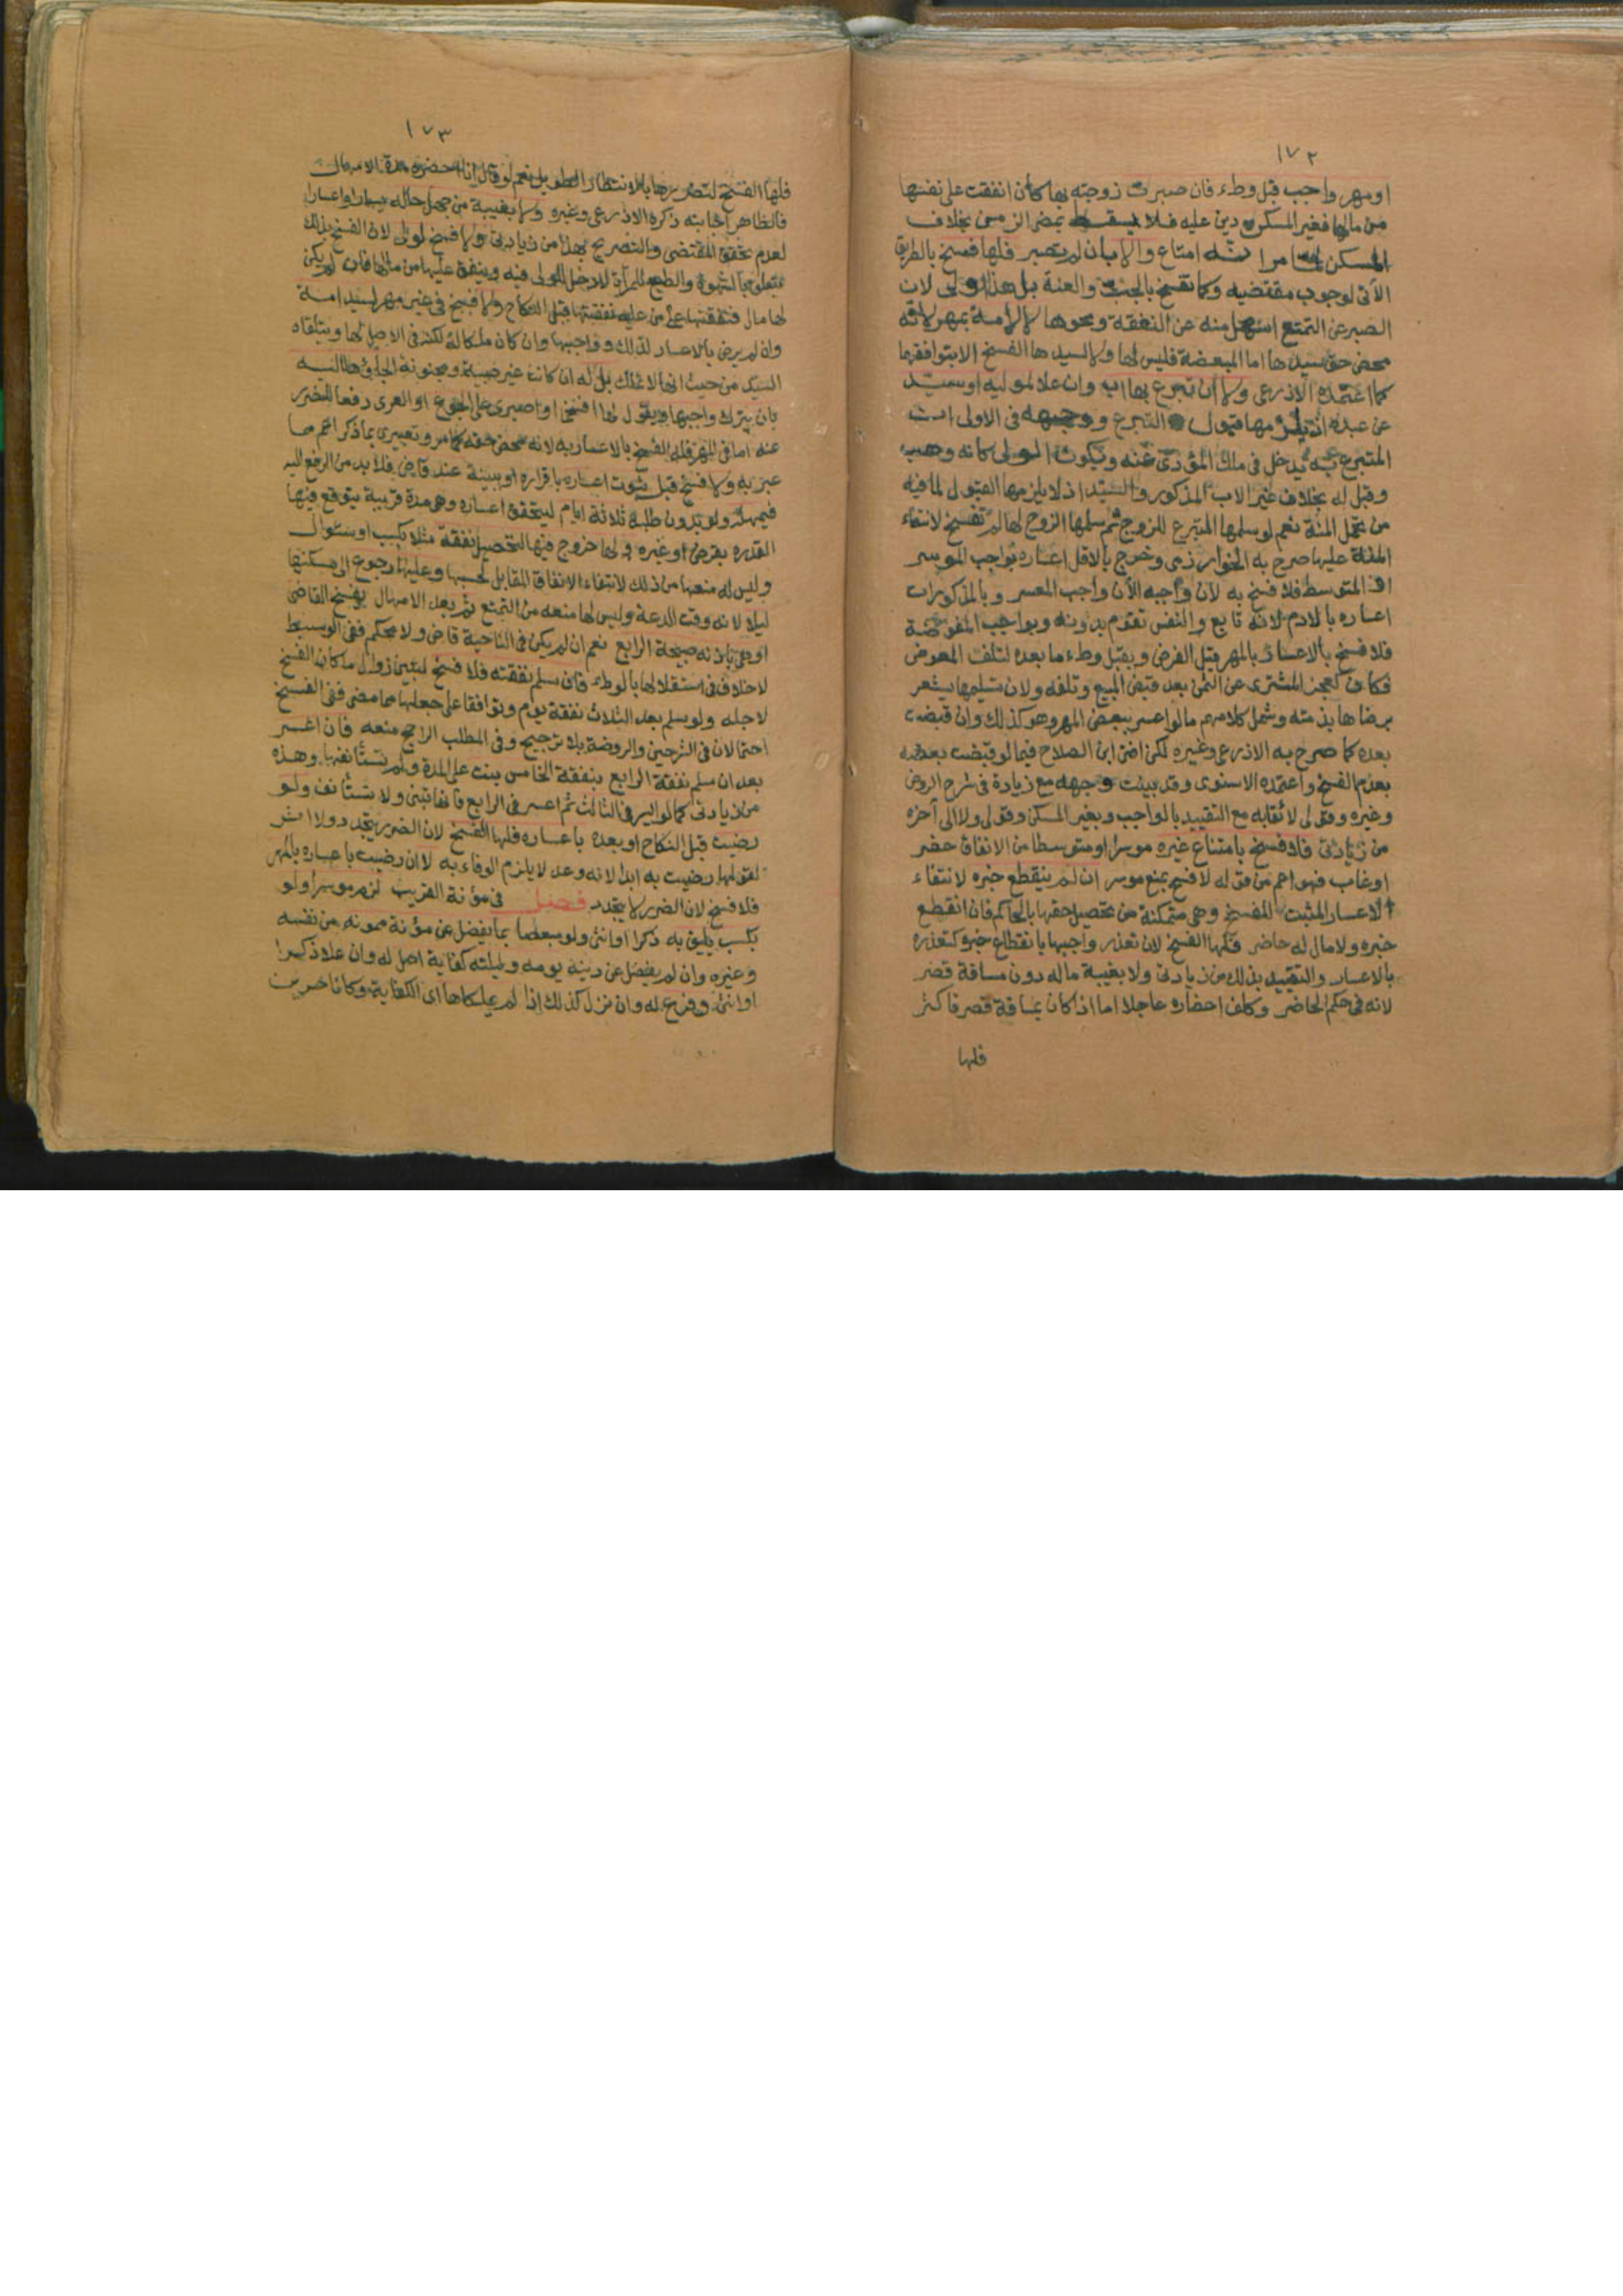 ١٧٢
او مهر واجب قبل وطء فان صبرت زوجته بها كان انفقت على نفسها
من مالها فغير المسكن دين عليه فلا يسقط بمضى الزمن بخلاف
المسكن لما مر انه امتاع والا بان لم تصبر فلها فسخ بالطريق
الآتى لوجوب مقتضيه وكما تفسخ بالجب والعنة بل هذا اولى لان
الصبر عن التمتع اسهل منه عن النفقة ونحوها لا لامة بمهر لانه
محض حق سيدها اما المبعضة فليس لها ولا لسيدها الفسخ الا بتوافقهما
كما اعتمده الاذرعى ولا ان تبرع بها اب وان علا لموليه او سيد
عن عبده اذ يلزمها قبول التبرع ووجهه فى الاولى ان
المتبرع به يدخل فى ملك المؤدى عنه ويكون الولى كانه وهب
وقبل له بخلاف غير الاب المذكور والسيد اذ لا يلزمها القبول لما فيه
من تحمل المنة نعم لو سلمها المتبرع للزوج ثم سلمها الزوج لها لم تفسخ لانتفاء
المنة عليها صرح به الخوارزمى وخرج بالاقل اعساره بواجب الموسر
او المتوسط فلا فسخ به لان واجبه الآن واجب المعسر وبالمذكورات
اعساره بالادم لانه تابع والنفس تقوم بدونه وبواجب المفوضة
فلا فسخ بالاعسار بالمهر قبل الفرض وبقبل وطء ما بعده لتلف المعوض
فكان كعجز المشترى عن الثمن بعد قبض المبيع وتلفه ولان تسليمها يشعر
برضاها بذمته وشمل كلامهم ما لو اعسر ببعض المهر وهو كذلك وان قبضت
بعضه كما صرح به الاذرعى وغيره لكن افتى ابن الصلاح فيما لو قبضت بعضه
بعدم الفسخ واعتمده الاسنوى وقد بينت وجهه مع زيادة فى شرح الروض
وغيره وقولى لائقا به مع التقييد بالواجب وبغير المسكن وقولى ولا الى آخره
من زيادتى فلا فسخ بامتناع غيره موسرا او متوسطا من الانفاق حضر
او غاب فهو اعم من قوله لا فسخ بمنع موسر ان لم ينقطع خبره لانتفاء
الاعسار المثبت للفسخ وهى متمكنة من تحصيل حقها بالحاكم فان انقطع
خبره ولا مال له حاضر فلها الفسخ لان تعذر واجبها بانقطاع خبره كتعذره
بالاعسار والتقييد بذلك من زيادتى ولا بغيبة ماله دون مسافة قصر
لانه فى حكم الحاضر وكلف احضاره عاجلا اما اذا كان بمسافة قصر فاكثر
فلها
١٧٣
فلها الفسخ لتضررها بالانتظار الطويل نعم لو قال انا احضره مدة الامهال
فالظاهر اجابته ذكره الاذرعى وغيره ولا بغيبة من جهل حاله يسارا واعسارا
لعدم تحقق المقتضى والتصريح بهذا من زيادتى ولا فسخ لولى لان الفسخ بذلك
يتعلق بالشهوة والطبع للمرأة لا دخل للولى فيه وينفق عليها من مالها فان لم يكن
لها مال فنفقتها على من عليه نفقتها قبل النكاح ولا فسخ فى غير مهر لسيد امة
وان لم يرض بالاعسار لذلك وواجبها وان كان ملكا له لكنه فى الاصل لها ويتلقاه
السيد من حيث انها لا تملك بل له ان كانت غير صبية ومجنونة الجاؤها اليه
بان يترك واجبها ويقول لها افسخى او اصبرى على الجوع او العرى دفعا للضرر
عنه اما فى المهر فله الفسخ بالاعسار به لانه محض حقه كما مر وتعبيرى بما ذكر اعم مما
عبر به ولا فسخ قبل ثبوت اعساره باقراره او ببينة عند قاض فلا بد من الرفع اليه
فيمهله ولو بدون طلبه ثلاثة ايام ليتحقق اعساره وهى مدة قريبة يتوقع فيها
القدرة بقرض او غيره ولها خروج فيها لتحصيل نفقة مثلا بكسب او سؤال
وليس له منعها من ذلك لانتفاء الانفاق المقابل لحبسها وعليها رجوع الى مسكنها
ليلا لانه وقت الدعة وليس لها منعه من التمتع ثم بعد الامهال يفسخ القاضى
او هى باذنه صبيحة الرابع نعم ان لم يكن فى الناحية قاض ولا محكم ففى الوسيط
لا خلاف فى استقلالها بالوطء فان سلم نفقته فلا فسخ لتبين زوال ما كان الفسخ
لاجله ولو سلم بعد الثلاث نفقة يوم وتوافقا على جعلها مما مضى ففى الفسخ
احتمالان فى الشرحين والروضة بلا ترجيح وفى المطلب الراجح منعه فان اعسر
بعد ان سلم نفقة الرابع بنفقة الخامس بنت على المدة ولم تستأنفها وهذه
من زيادتى كما لو ايسر فى الثالث ثم اعسر فى الرابع فانها تبنى ولا تستأنف ولو
رضيت قبل النكاح او بعده باعساره فلها الفسخ لان الضرر يتجدد ولا اثر
لقولها رضيت به ابدا لانه وعد لا يلزم الوفاء به لا ان رضيت باعساره بالمهر
فلا فسخ لان الضرر لا يتجدد فصل فى مؤنة القريب لزم موسرا ولو
بكسب يليق به ذكرا او انثى ولو مبعضا بما يفضل عن مؤنة ممونه من نفسه
وغيره وان لم يفضل عن دينه يومه وليلته كفاية اصل له وان علا ذكرا
او انثى وفرع له وان نزل كذلك اذا لم يملكاها اى الكفاية وكانا حرين